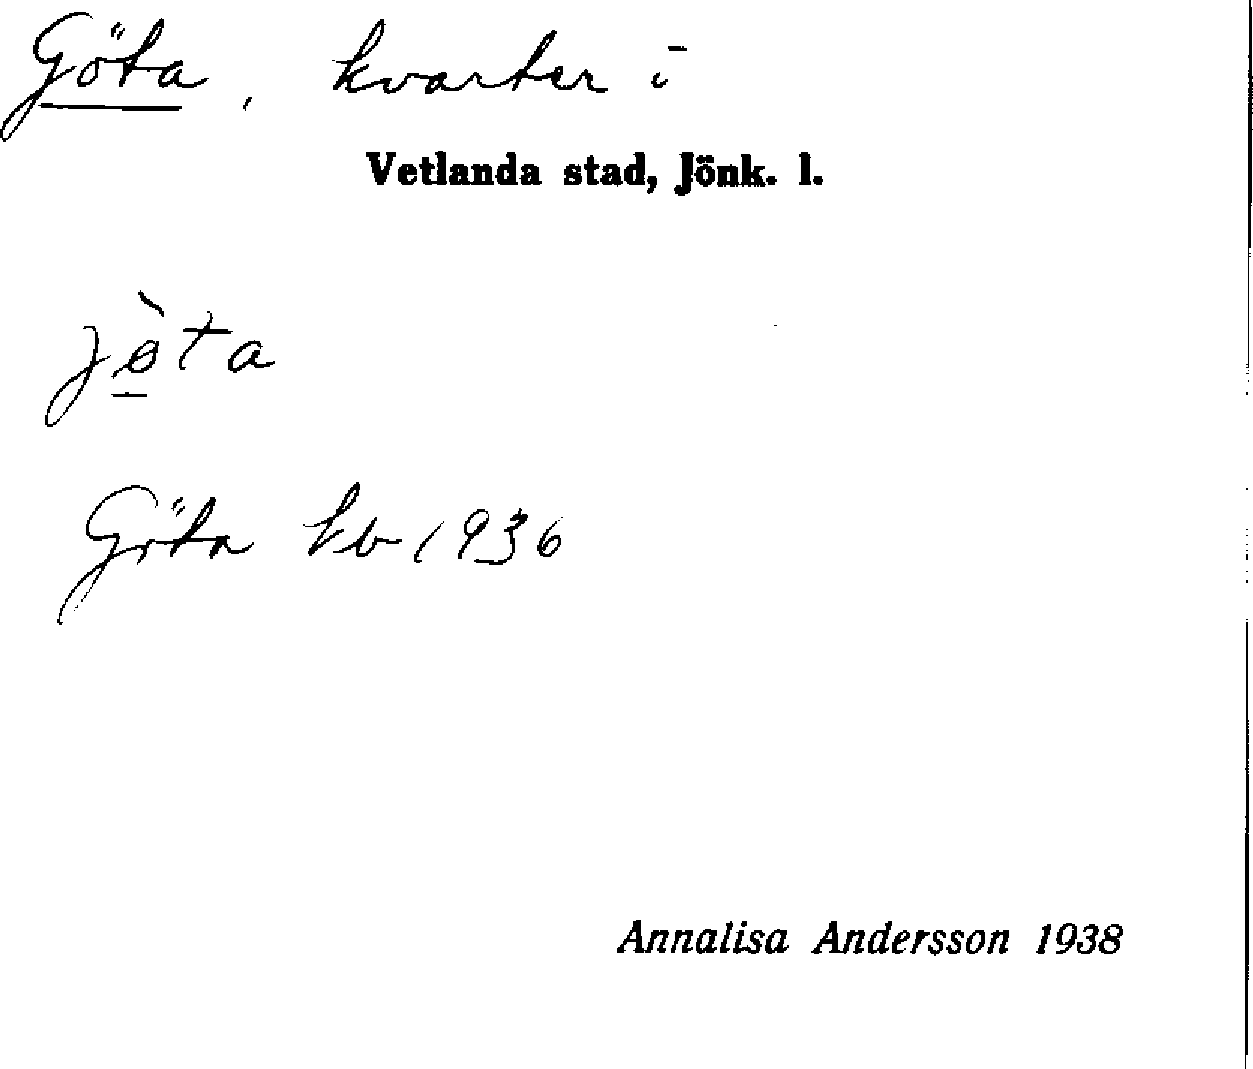 Göta, kvarter i
Vetlanda stad, Jönk. l.
jø̀ta
Göta kb 1936
Annalisa Andersson 1938